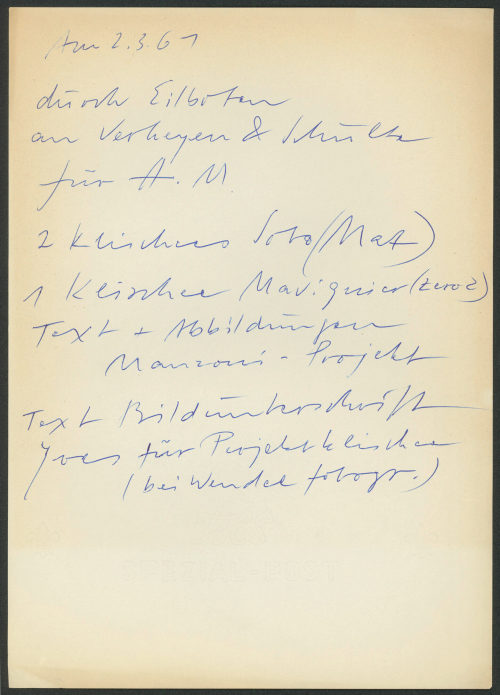 Am 2.3.61
durch Eilboten
an Verheyen & Schulte
für A. M.
2 Klischees Soto (Mat)
1 Klischee Mavignier (Zero 2)
Text + Abbildungen
Manzoni - Projekt
Text Bildunterschrift
Yves für Projektklischee
(bei Wendel fotogr.)